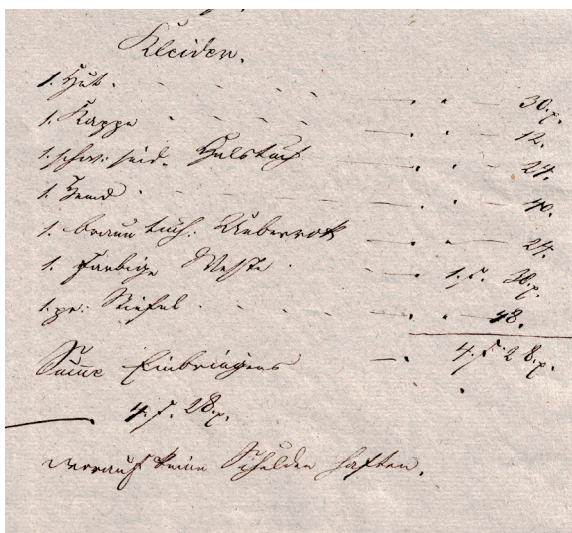 Kleider.
1. Hut. — . " — 30.x.
1. Kappe — . " — 12.
1. schw: seid. Halstuch — . " — 24.
1. Hemd . — . " — 40.
1. braun tuch: Ueberrok — . " — 24.
1. farbige Weste . — . 1.f. 30.x.
1. pr: Stiefel . — . " — 48.
Sume Einbringens — . 4.f. 28.x.
4.f. 28.x.
worauf keine Schulden haften.